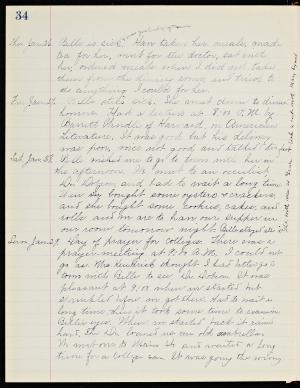 34
Thu. Jan. 26. Belle is sick. Have taken her meals, made
tea for her, went for the doctor, sat and
her, ordered meals when I did not take
them from the dining room, and tried to
do anything I could for her.
Fri. Jan. 27. Belle still sick. She went down to dinner
however. Had a lecture at 8:00 P.M. by
Barrett Wendell of Harvard, on American
Literature. It was good but his delivery
was poor, voice not good and talked too fast
Sat. Jan. 28. Belle wished me to go to town with her in
the afternoon. We went to an oculist,
Dr. and had to wait a long time.
bought some oysters & crackers,
and she bought some cookies, cakes, and
rolls and we are to have our supper in
our room tomorrow night.
Sun. Jan. 29. Day of prayer for Colleges. There was a
prayer meeting at 9:00 A.M. I could not
go as Mrs. thought I had better go to
town with Belle to see Dr. It was
pleasant at 9:00 when we started but
sprinkled when we got there. Had to wait a
long time then it took some time to examine
Belle's eyes. When we started back it rained
hard. The Dr. loaned us an old umbrella.
We went over to Main St. and waited a long
time for a college car. It was going the wrong